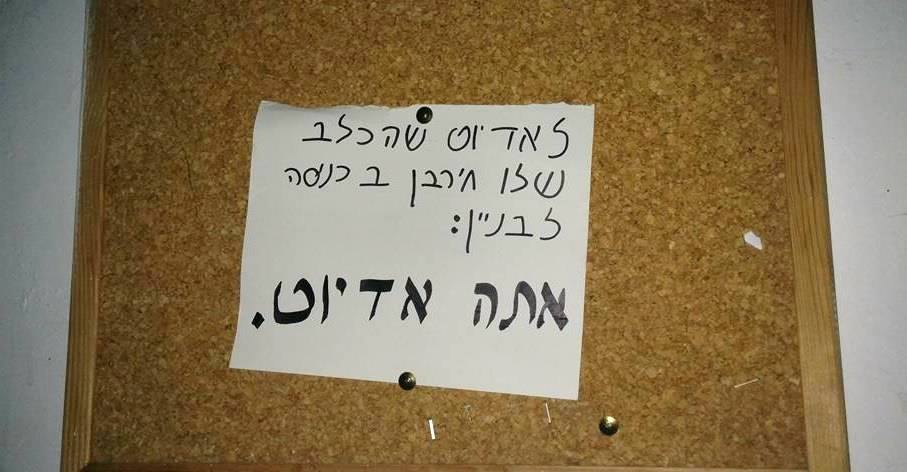 לאדיוט שהכלב
שלו חירבן בכניסה
לבניין:
אתה אדיוט.